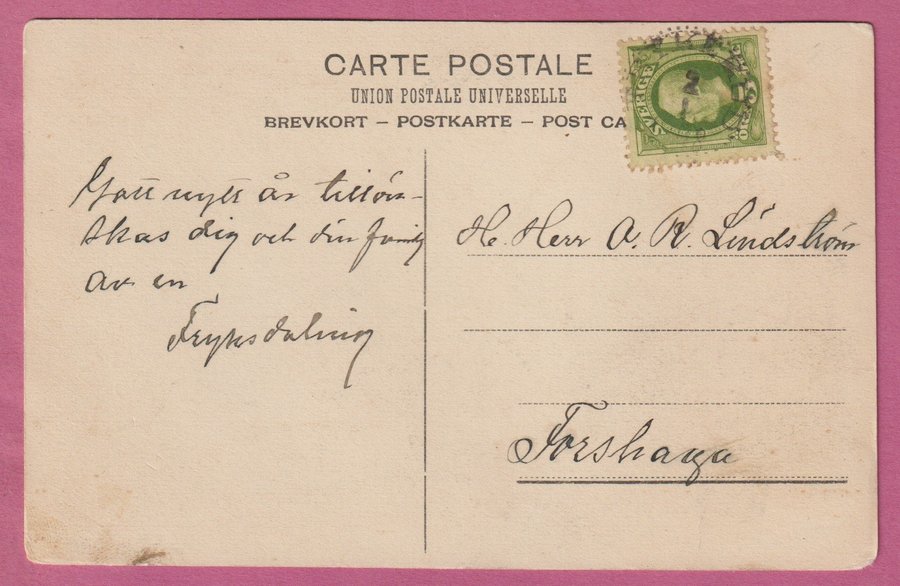 CARTE POSTALE
UNION POSTALE UNIVERSELLE
BREVKORT – POSTKARTE – POST CA
SVERIGE
Gott nytt år tillön-
skas dig och din familj
av en
Fryksdaling
He. Herr A. R. Lindström
Forshaga